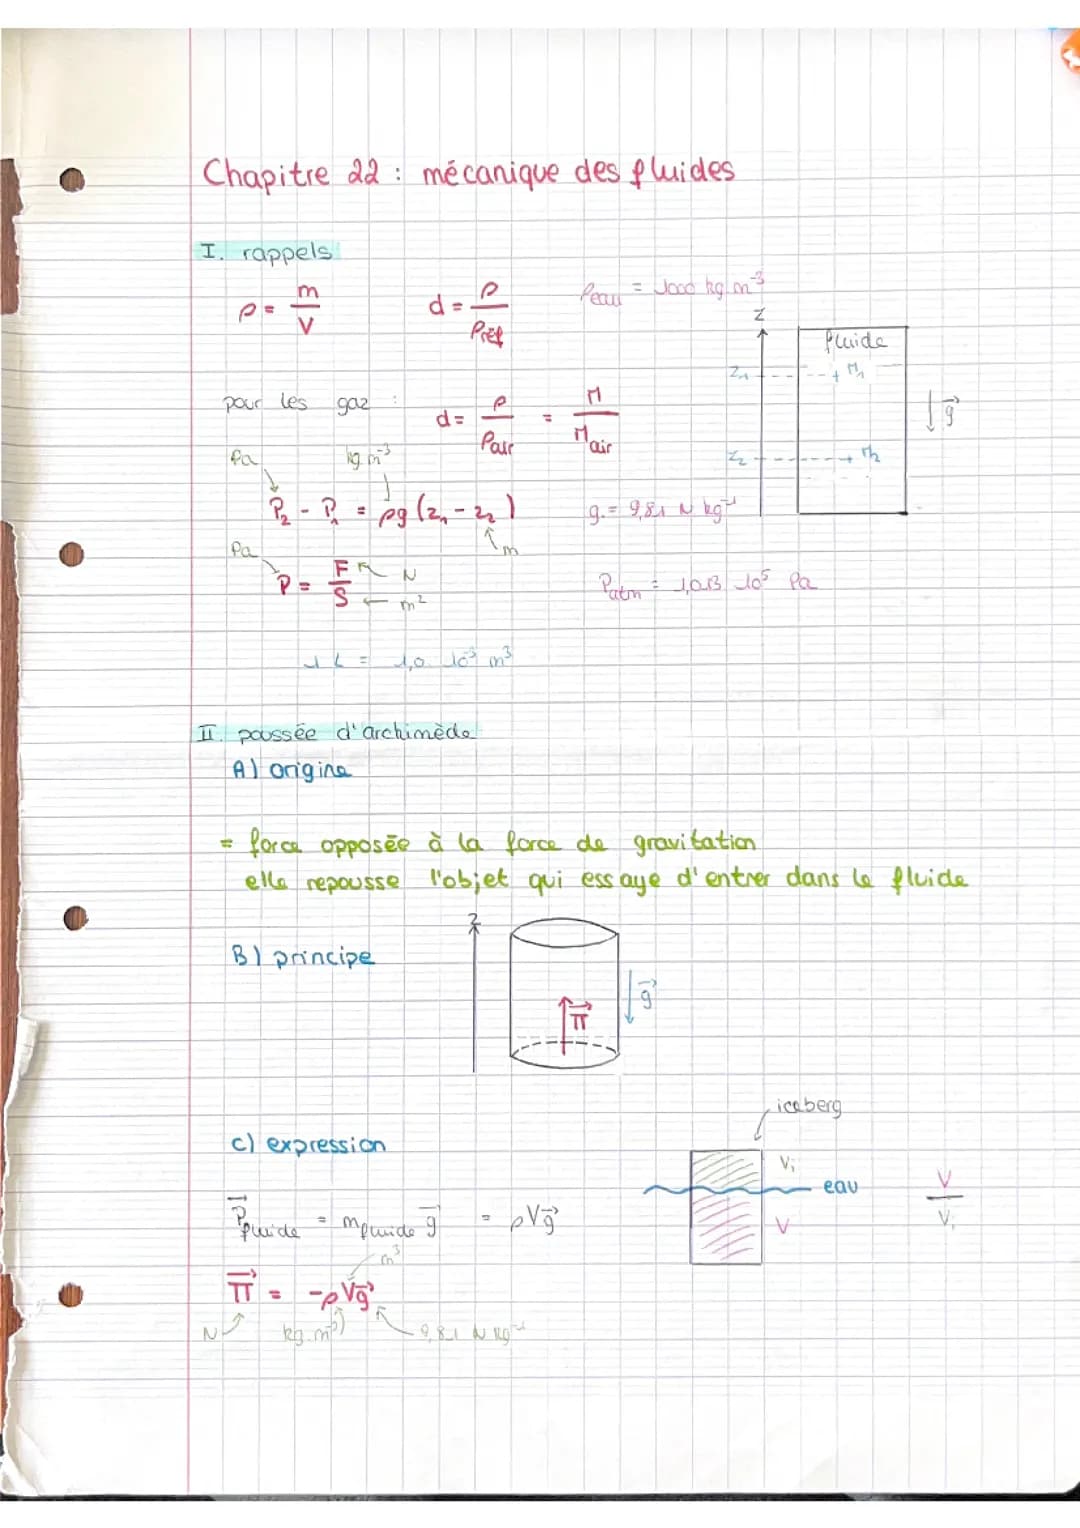 Chapitre 22 : mécanique des fluides
I. rappels
ρ = m/V d = ρ/ρréf ρeau = 1000 kg.m⁻³
z
fluide
z₁ + M₁
g⃗
pour les gaz : d = ρ/ρair = M/Mair
z₂ + M₂
Pa kg.m⁻³
P₂ - P₁ = ρg (z₁ - z₂) g = 9,81 N kg⁻¹
m
Pa
P = F/S N m² Patm = 1,013 10⁵ Pa
1 L = 1,0 10⁻³ m³
II. poussée d'archimède
A) origine
= force opposée à la force de gravitation
elle repousse l'objet qui essaye d'entrer dans le fluide
B) principe
z
Π⃗
g⃗
iceberg
C) expression
Vi
eau
V
V/Vi
P⃗fluide = mfluide g⃗ = ρVg⃗
m³
Π⃗ = -ρVg⃗
N kg.m⁻³ 9,81 N kg⁻¹